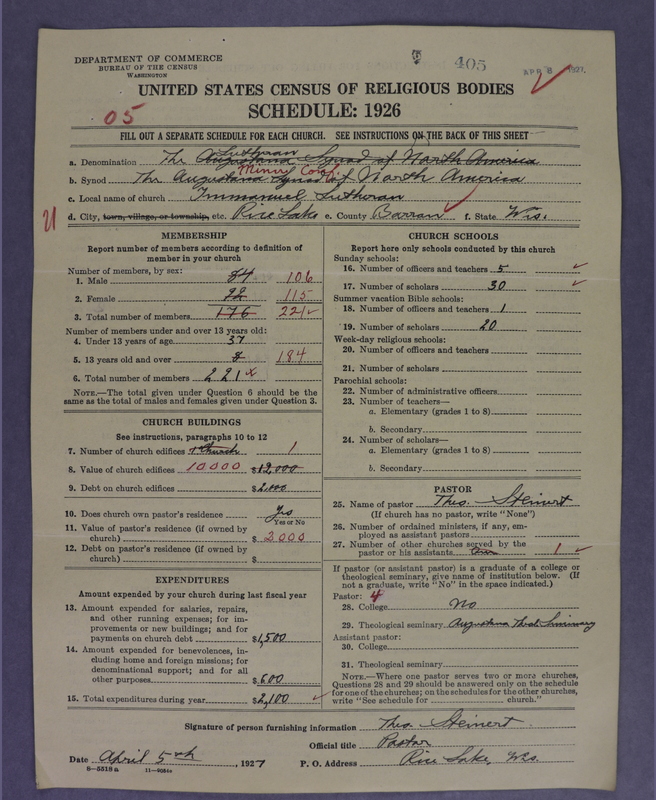 DEPARTMENT OF COMMERCE
BUREAU OF THE CENSUS
WASHINGTON
405
APR 8 1927
UNITED STATES CENSUS OF RELIGIOUS BODIES
SCHEDULE: 1926
05
FILL OUT A SEPARATE SCHEDULE FOR EACH CHURCH. SEE INSTRUCTIONS ON THE BACK OF THIS SHEET
Lutheran
a. Denomination The Augustana Synod of North America
b. Synod The Augustana Synod of North America
c. Local name of church Immanuel Lutheran
d. City, town, village, or township, etc. Rice Lake e. County Barron f. State Wis.
MEMBERSHIP
Report number of members according to definition of member in your church
Number of members, by sex:
1. Male 84 106
2. Female 92 115
3. Total number of members 176 221
Number of members under and over 13 years old:
4. Under 13 years of age 37
5. 13 years old and over 184
6. Total number of members 221 x
NOTE.—The total given under Question 6 should be the
same as the total of males and females given under Question 3.
CHURCH BUILDINGS
See instructions, paragraphs 10 to 12
7. Number of church edifices 1 Church 1
8. Value of church edifices 10000 $12,000
9. Debt on church edifices $2,000
10. Does church own pastor's residence? Yes
Yes or No
11. Value of pastor's residence (if owned by
church) $ 2000
12. Debt on pastor's residence (if owned by
church) $
EXPENDITURES
Amount expended by your church during last fiscal year
13. Amount expended for salaries, repairs,
and other running expenses; for im-
provements or new buildings; and for
payments on church debt $1,500
14. Amount expended for benevolences, in-
cluding home and foreign missions; for
denominational support; and for all
other purposes $600
15. Total expenditures during year $2,100
CHURCH SCHOOLS
Report here only schools conducted by this church
Sunday schools:
16. Number of officers and teachers 5
17. Number of scholars 30
Summer vacation Bible schools:
18. Number of officers and teachers 1
19. Number of scholars 20
Week-day religious schools:
20. Number of officers and teachers
21. Number of scholars
Parochial schools:
22. Number of administrative officers
23. Number of teachers—
a. Elementary (grades 1 to 8)
b. Secondary
24. Number of scholars—
a. Elementary (grades 1 to 8)
b. Secondary
PASTOR
25. Name of pastor Theo. Steinert
(If church has no pastor, write "None")
26. Number of ordained ministers, if any, em-
ployed as assistant pastors
27. Number of other churches served by the
pastor or his assistants 1
If pastor (or assistant pastor) is a graduate of a college or
theological seminary, give name of institution below. (If
not a graduate, write "No" in the space indicated.)
Pastor: 4
28. College No
29. Theological seminary Augustana Theol. Seminary
Assistant pastor:
30. College
31. Theological seminary
NOTE.—Where one pastor serves two or more churches,
Questions 28 and 29 should be answered only on the schedule
for one of the churches; on the schedules for the other churches,
write "See schedule for church."
Signature of person furnishing information Theo. Steinert
Official title Pastor
Date April 5th, 1927 P. O. Address Rice Lake, Wis.
8—5518a